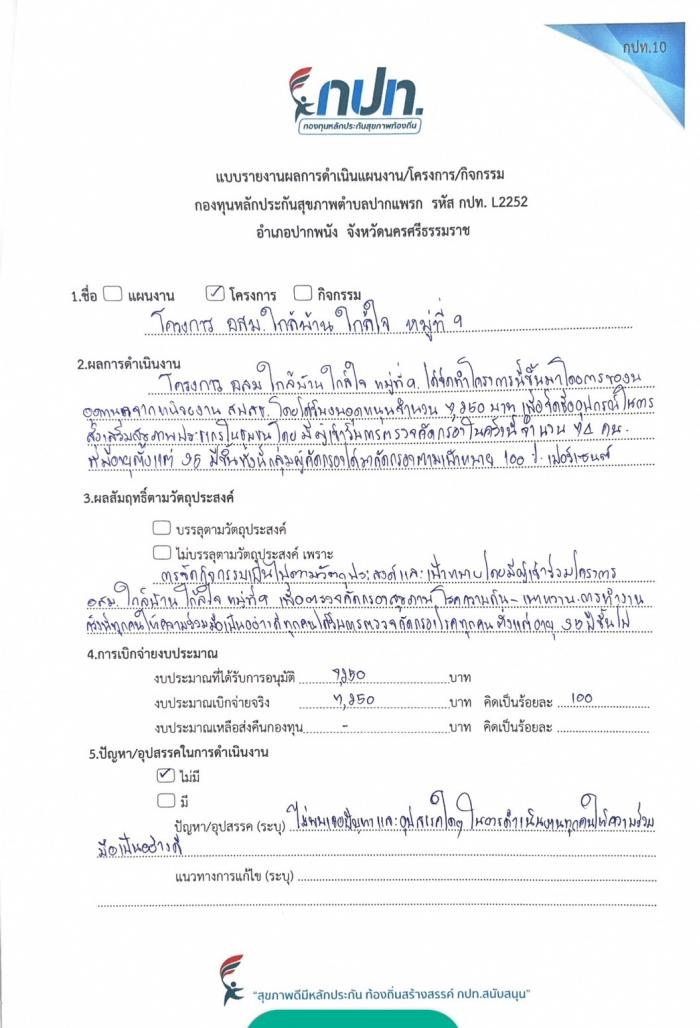 กปท.10
กปท.
กองทุนหลักประกันสุขภาพท้องถิ่น
แบบรายงานผลการดำเนินแผนงาน/โครงการ/กิจกรรม
กองทุนหลักประกันสุขภาพตำบลปากแพรก รหัส กปท. L2252
อำเภอปากพนัง จังหวัดนครศรีธรรมราช
1.ชื่อ แผนงาน ✓ โครงการ กิจกรรม
โครงการ อสม. ใกล้บ้าน ใกล้ใจ หมู่ที่ 9
2.ผลการดำเนินงาน
โครงการ อสม ใกล้บ้าน ใกล้ใจ หมู่ที่ 9. ได้จัดทำโครงการนี้ขึ้นมาโดยการของบ
อุดหนุนจากหน่วยงาน สปสช. โดยได้รับงบอุดหนุนจำนวน 7,250 บาท เพื่อจัดซื้ออุปกรณ์ในการ
ส่งเสริมสุขภาพประชากรในชุมชน โดย มีผู้เข้ารับการตรวจคัดกรองในครั้งนี้ จำนวน 74 คน.
ที่มีอายุตั้งแต่ 35 ปีขึ้น กลุ่มผู้คัดกรองได้มาคัดกรองตามเป้าหมาย 100 เปอร์เซนต์
3.ผลสัมฤทธิ์ตามวัตถุประสงค์
บรรลุตามวัตถุประสงค์
ไม่บรรลุตามวัตถุประสงค์ เพราะ
การจัดกิจกรรมเป็นไปตามวัตถุประสงค์และเป้าหมายโดยมีผู้เข้าร่วมโครงการ
อสม. ใกล้บ้าน ใกล้ใจ หมู่ที่ 9 เพื่อตรวจคัดกรองสุขภาพ โรคความดัน - เบาหวาน การทำงาน
ครั้งนี้ทุกคนให้ความร่วมมือเป็นอย่างดี ทุกคนได้รับการตรวจคัดกรองโรคทุกคน ตั้งแต่อายุ 35 ปีขึ้นไป
4.การเบิกจ่ายงบประมาณ
งบประมาณที่ได้รับการอนุมัติ 7,250 บาท
งบประมาณเบิกจ่ายจริง 7,250 บาท คิดเป็นร้อยละ 100
งบประมาณเหลือส่งคืนกองทุน - บาท คิดเป็นร้อยละ
5.ปัญหา/อุปสรรคในการดำเนินงาน
✓ ไม่มี
มี
ปัญหา/อุปสรรค (ระบุ) ไม่พบเจอปัญหาและอุปสรรคใดๆ ในการดำเนินงานทุกคนให้ความร่วม
มือเป็นอย่างดี
แนวทางการแก้ไข (ระบุ)
"สุขภาพดีมีหลักประกัน ท้องถิ่นสร้างสรรค์ กปท.สนับสนุน"